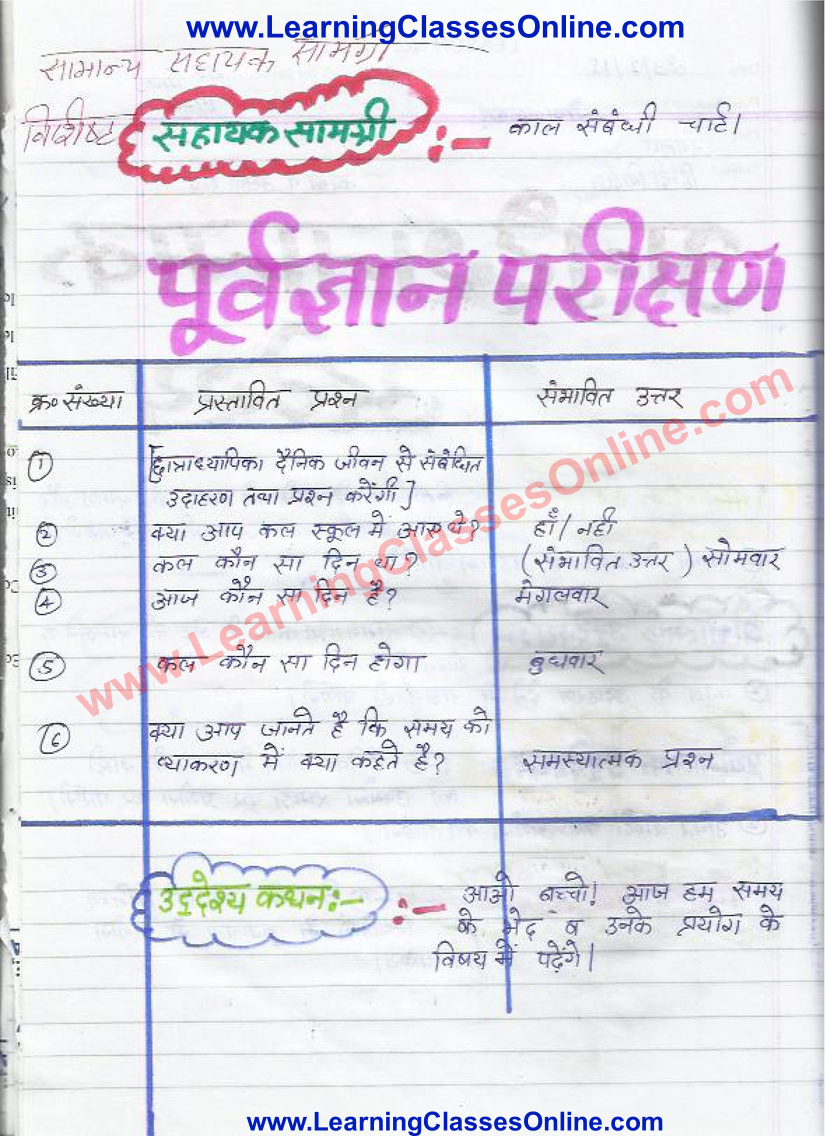 www.LearningClassesOnline.com
सामान्य सहायक सामग्री
विशिष्ट सहायक सामग्री :- काल संबंधी चार्ट।
पूर्वज्ञान परीक्षण
क्र० संख्या प्रस्तावित प्रश्न संभावित उत्तर
1 [छात्राध्यापिका दैनिक जीवन से संबंधित
उदाहरण तथा प्रश्न करेंगी]
2 क्या आप कल स्कूल में आए थे? हाँ/नहीं
3 कल कौन सा दिन था? (संभावित उत्तर) सोमवार
4 आज कौन सा दिन है? मंगलवार
5 कल कौन सा दिन होगा बुधवार
6 क्या आप जानते है कि समय को
व्याकरण में क्या कहते है? समस्यात्मक प्रश्न
www.LearningClassesOnline.com
उद्देश्य कथन:- :- आओ बच्चो! आज हम समय
के भेद व उनके प्रयोग के
विषय में पढ़ेंगे।
www.LearningClassesOnline.com